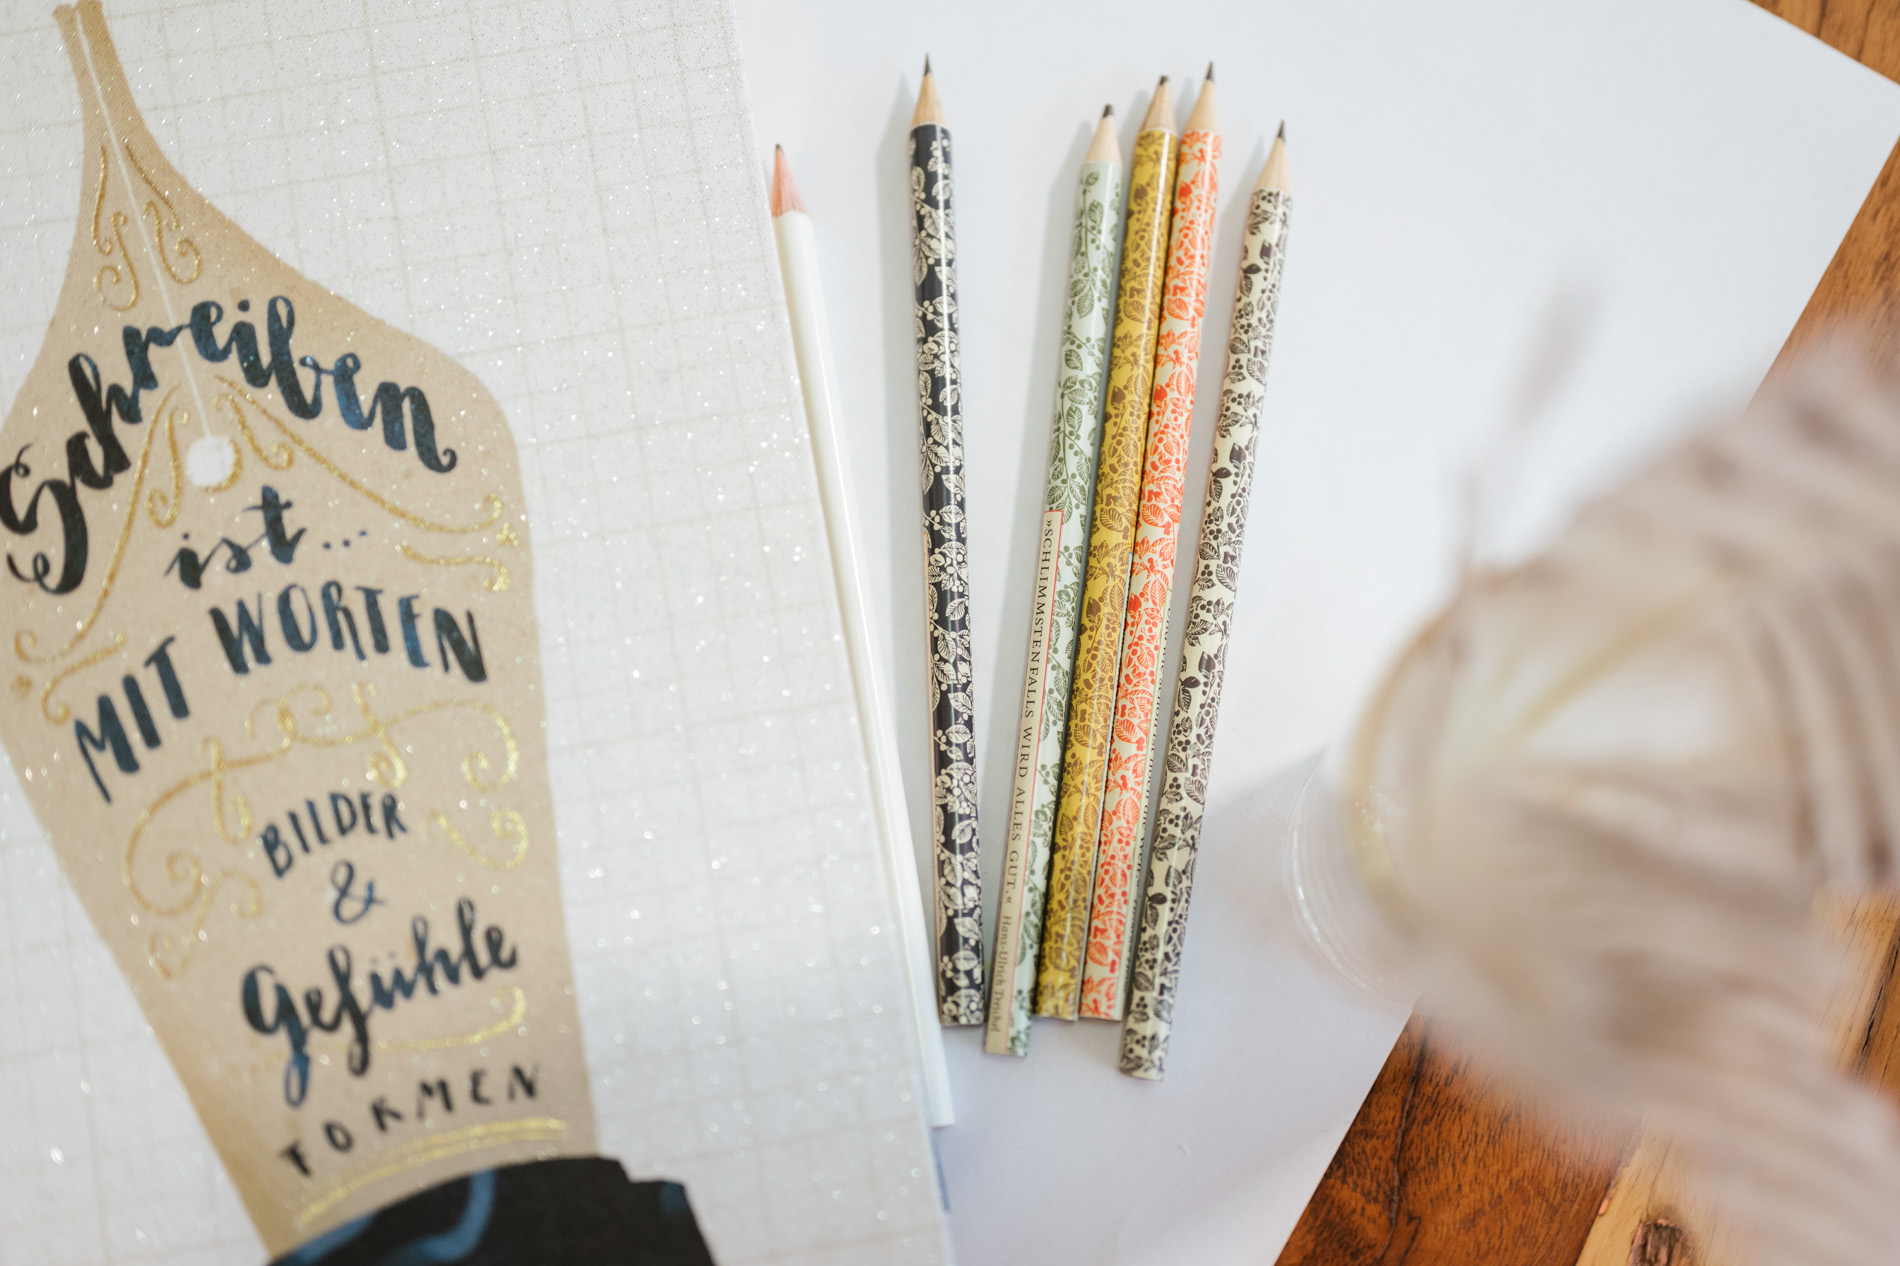 Schreiben
ist...
MIT WORTEN
BILDER
&
Gefühle
FORMEN
»SCHLIMMSTENFALLS WIRD ALLES GUT.« Hans-Ulrich Treichel